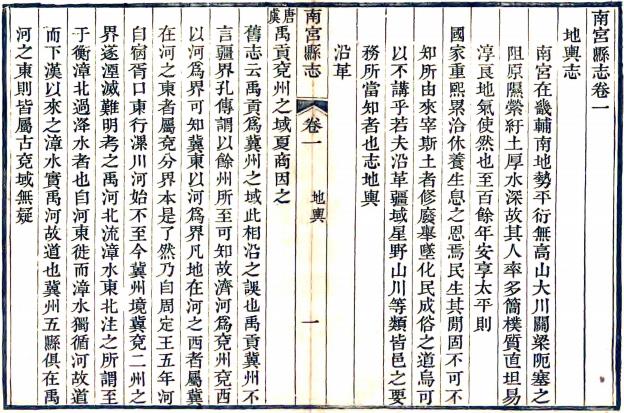 南宮縣志卷一
地輿志
南宮在畿輔南地勢平衍無高山大川關梁阨塞之
阻原隰縈紆土厚水深故其人率多簡樸質直坦易
淳良地氣使然也至百餘年安享太平則
國家重熙累洽休養生息之恩焉民生其閒固不可不
知所由來宰斯土者修廢舉墜化民成俗之道烏可
以不講乎若夫沿革疆域星野山川等類皆邑之要
務所當知者也志地輿
沿革
南宮縣志 卷一 地輿 一
唐虞禹貢兗州之域夏商因之
舊志云禹貢爲冀州之域此相沿之誤也禹貢冀州不
言疆界孔傳謂以餘州所至可知故濟河爲兗州兗西
以河爲界可知冀東以河爲界凡地在河之西者屬冀
在河之東者屬兗分界本是了然乃自周定王五年河
自宿胥口東行漯川河始不至今冀州境冀兗二州之
界遂湮滅難明考之禹河北流漳水東北注之所謂至
于衡漳北過洚水者也自河東徙而漳水獨循河故道
而下漢以來之漳水實禹河故道也冀州五縣俱在禹
河之東則皆屬古兗域無疑